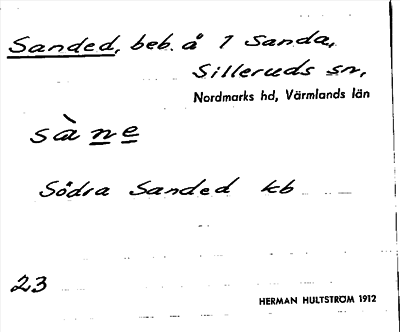 Sanded, beb. å 1 Sanda,
Silleruds sn,
Nordmarks hd, Värmlands län
sàne
Södra Sanded kb
23
HERMAN HULTSTRÖM 1912